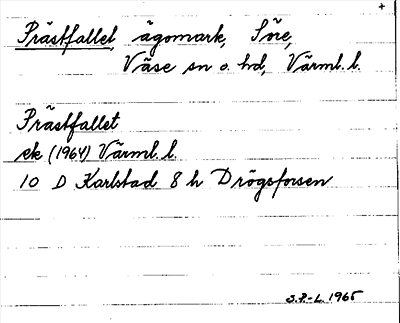 +
Prästfallet, ägomark, Söre,
Väse sn o. hd, Värml. l.
Prästfallet
ek (1964) Värml. l.
10 D Karlstad 8 h Drögsforsen
S.P.-L. 1965